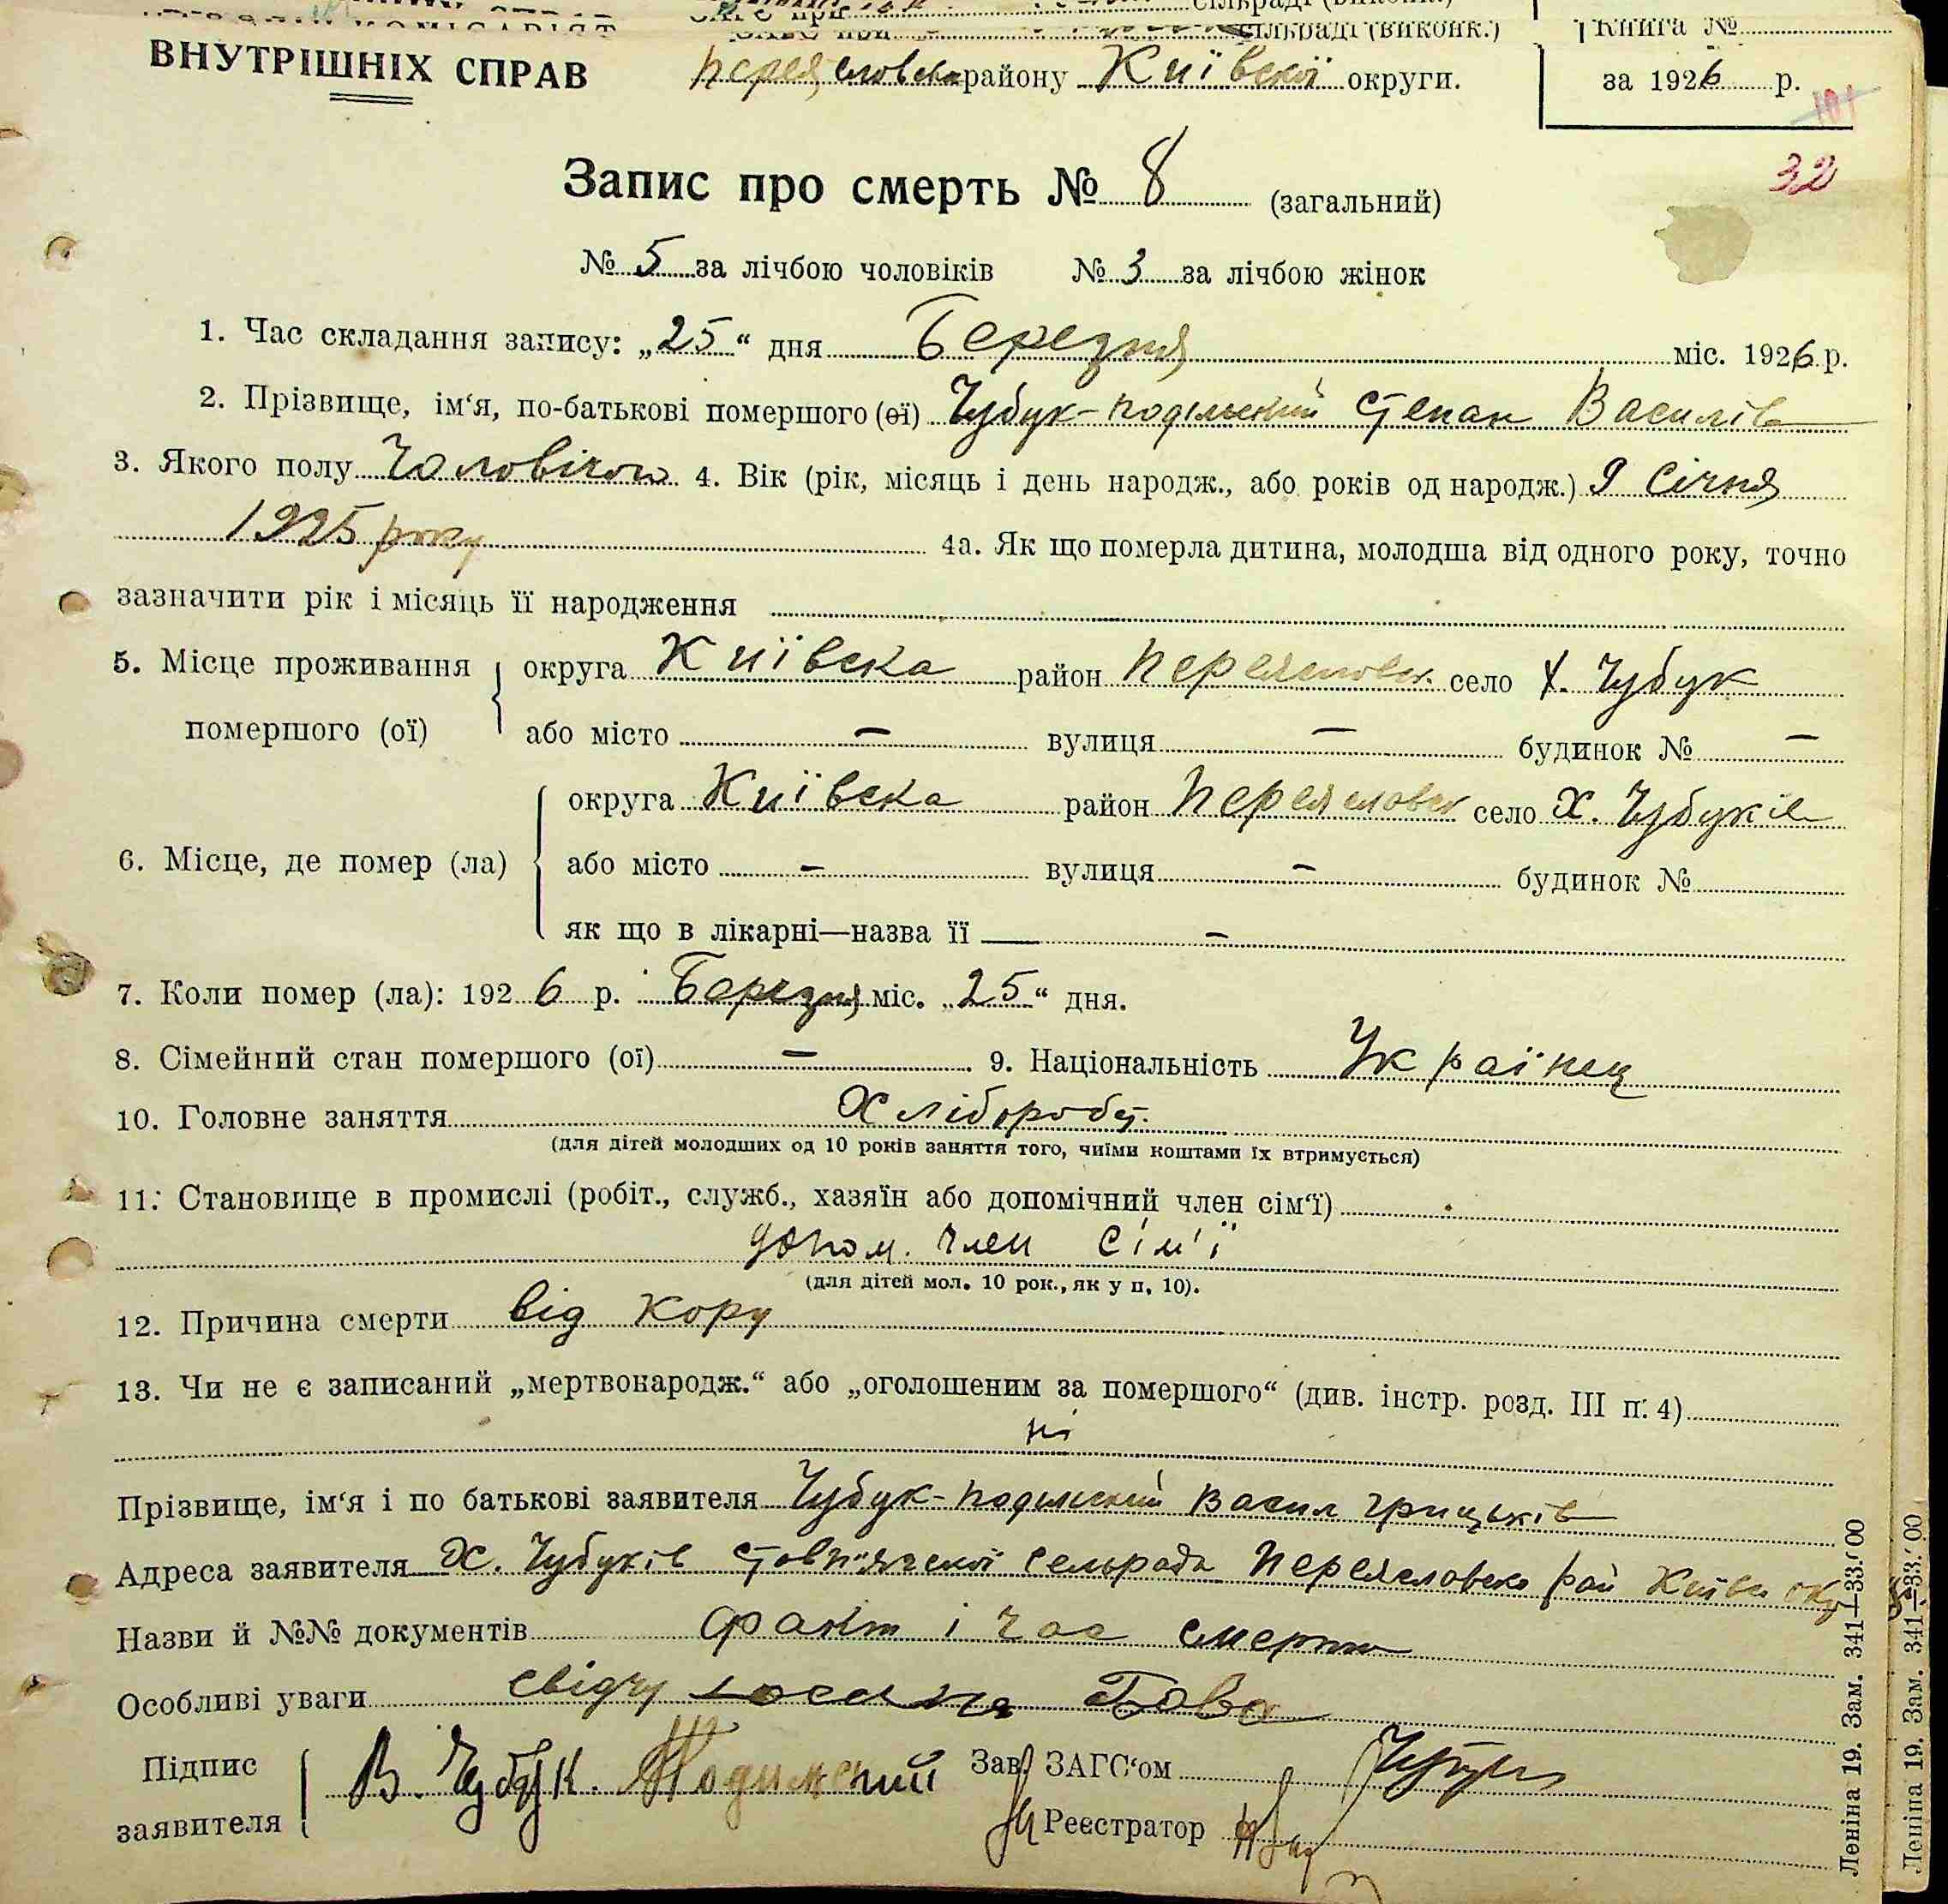 ВНУТРІШНІХ СПРАВ
сільраді (виконк.)
Книга №
Переяславськ району Київської округи.
за 1926 р.
101
32
Запис про смерть № 8 (загальний)
№ 5 за лічбою чоловіків № 3 за лічбою жінок
1. Час складання запису: „25“ дня Березня міс. 1926 р.
2. Прізвище, ім‘я, по-батькові помершого (ої) Чубук-Подільский Степан Василів
3. Якого полу Чоловічого 4. Вік (рік, місяць і день народж., або років од народж.) 9 Січня
1925 року 4а. Як що померла дитина, молодша від одного року, точно
зазначити рік і місяць її народження
5. Місце проживання помершого (ої) округа Київська район Переяславськ. село х. Чубук
або місто — вулиця — будинок № —
6. Місце, де помер (ла) округа Київська район Переяславськ село х. Чубуків
або місто — вулиця — будинок №
як що в лікарні—назва її —
7. Коли помер (ла): 1926 р. Березня міс. „25“ дня.
8. Сімейний стан помершого (ої) — 9. Національність Українец
10. Головне заняття Хлібороб.
(для дітей молодших од 10 років заняття того, чиїми коштами їх втримується)
11. Становище в промислі (робіт., служб., хазяїн або допомічний член сім‘ї)
допом. член сім'ї
(для дітей мол. 10 рок., як у п, 10).
12. Причина смерти від кору
13. Чи не є записаний „мертвонародж.“ або „оголошеним за помершого“ (див. інстр. розд. III п. 4)
ні
Прізвище, ім‘я і по батькові заявителя Чубук-Подільский Васил Грицьків
Адреса заявителя х. Чубуків Стовп'яжської сельрада Переяславсько рай Київ окр
Назви й №№ документів факт і час смерти
Особливі уваги свідчу
Підпис заявителя В. Чубук. Подильский Зав. ЗАГС‘ом
Реєстратор
Леніна 19. Зам. 341—33.000
Леніна 19. Зам. 341—33.000